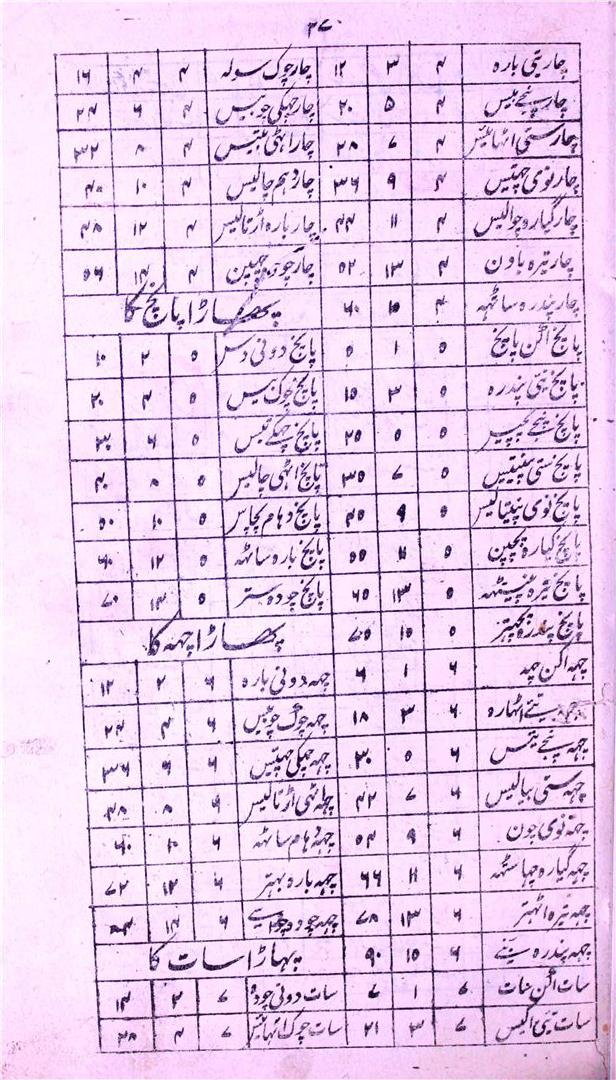 ۳۷
چار تی بارہ ۴ ۳ ۱۲ چار چوک سولہ ۴ ۴ ۱۶
چار پنجے بیس ۴ ۵ ۲۰ چار چھکی چوبیس ۴ ۶ ۲۴
چار ستی اٹھائیس ۴ ۷ ۲۸ چار اٹھی بتیس ۴ ۸ ۳۲
چار نوی چھتیس ۴ ۹ ۳۶ چار دہم چالیس ۴ ۱۰ ۴۰
چار گیارہ چوالیس ۴ ۱۱ ۴۴ چار بارہ اڑتالیس ۴ ۱۲ ۴۸
چار تیرہ باون ۴ ۱۳ ۵۲ چار چودہ چھپن ۴ ۱۴ ۵۶
چار پندرہ ساٹھہ ۴ ۱۵ ۶۰ پھاڑا پانچ کا
پانچ اکن پانچ ۵ ۱ ۵ پانچ دونی دس ۵ ۲ ۱۰
پانچ تی پندرہ ۵ ۳ ۱۵ پانچ چوک بیس ۵ ۴ ۲۰
پانچ پنجے پچیس ۵ ۵ ۲۵ پانچ چھکے تیس ۵ ۶ ۳۰
پانچ ستی پینتیس ۵ ۷ ۳۵ پانچ اٹھی چالیس ۵ ۸ ۴۰
پانچ نوی پینتالیس ۵ ۹ ۴۵ پانچ دہام پچاس ۵ ۱۰ ۵۰
پانچ گیارہ پچپن ۵ ۱۱ ۵۵ پانچ بارہ ساٹھہ ۵ ۱۲ ۶۰
پانچ تیرہ پینسٹھہ ۵ ۱۳ ۶۵ پانچ چودہ ستر ۵ ۱۴ ۷۰
پانچ پندرہ پچھتر ۵ ۱۵ ۷۵ پھاڑا چہہ کا
چہہ اکن چہہ ۶ ۱ ۶ چہہ دونی بارہ ۶ ۲ ۱۲
چہہ تیے اٹھارہ ۶ ۳ ۱۸ چہہ چوک چوبیس ۶ ۴ ۲۴
چہہ پنجے تیس ۶ ۵ ۳۰ چہہ چھکی چھتیس ۶ ۶ ۳۶
چہہ ستی بیالیس ۶ ۷ ۴۲ چہہ اٹھی اڑتالیس ۶ ۸ ۴۸
چہہ نوی چون ۶ ۹ ۵۴ چہہ دہام ساٹھہ ۶ ۱۰ ۶۰
چہہ گیارہ چھیاسٹھہ ۶ ۱۱ ۶۶ چہہ بارہ بہتر ۶ ۱۲ ۷۲
چہہ تیرہ اٹھتر ۶ ۱۳ ۷۸ چہہ چودہ ۶ ۱۴ ۸۴
چہہ پندرہ ۶ ۱۵ ۹۰ پہاڑا سات کا
سات اکن سات ۷ ۱ ۷ سات دونی چودہ ۷ ۲ ۱۴
سات تی اکیس ۷ ۳ ۲۱ سات چوک اٹھائیس ۷ ۴ ۲۸